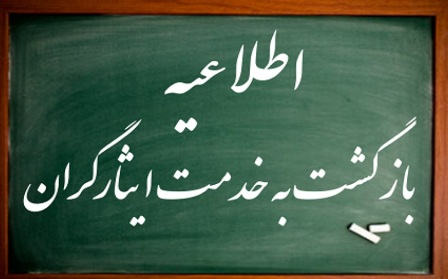 اطلاعیه
بازگشت به خدمت ایثارگران